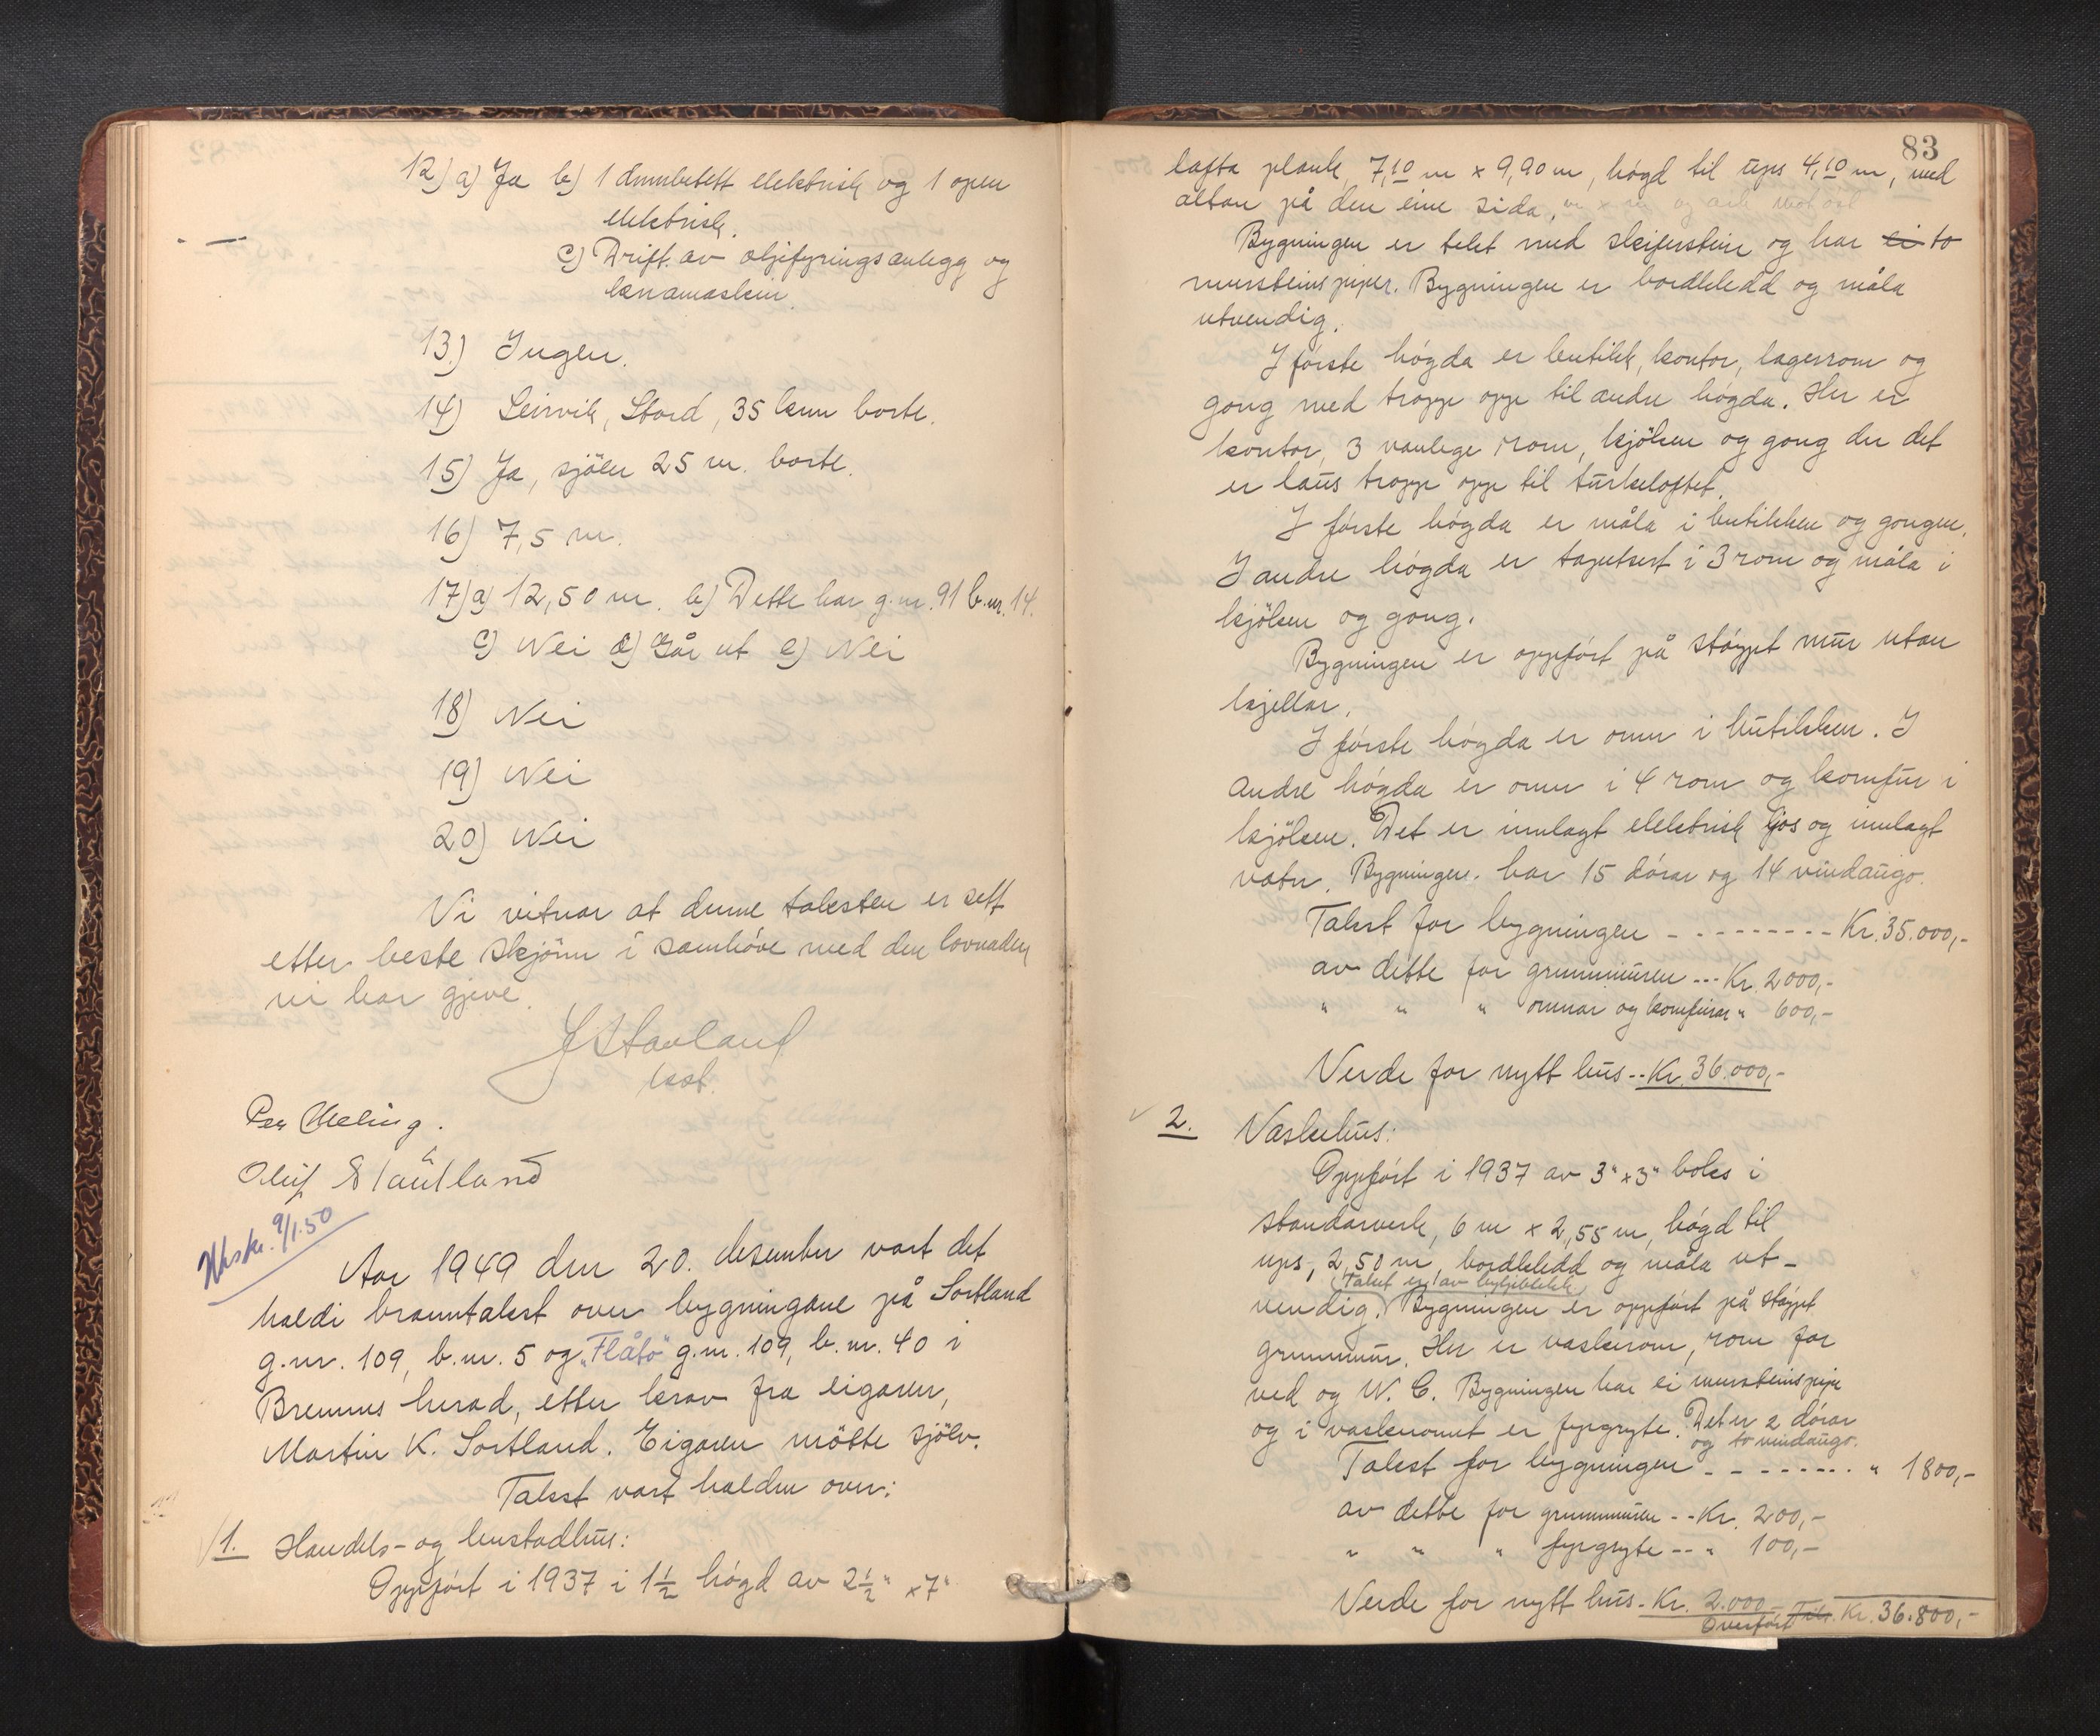 12) a) Ja b) 1 dmmbetett elektrisk og 1 open
elektrisk.
c) Drift av oljefyringsanlegg og
knamaskin
13) Ingen.
14) Leirvik, Stord, 35 km borte.
15) Ja, sjöen 25 m. borte.
16) 7,5 m.
17) a) 12,50 m. b) Dette har g.nr. 91 b.nr. 14.
c) Nei d) Går ut e) Nei
18) Nei
19) Nei
20) Nei
Vi vitnar at denne taksten er sett
etter beste skjönn i samhöve med den lovnaden
vi har gjeve.
J Stavland
lest.
Per Meling.
Oluf Stautland
Utskr. 9/1.50
Aar 1949 den 20. desember vart det
haldi branntakst over bygningane på Sortland
g.nr. 109, b.nr. 5 og „Flåtö" g.nr. 109, b.nr. 40 i
Bremnes herad, etter krav fra eigaren,
Martin K. Sortland. Eigaren mötte sjölv.
Takst vart halden over:
1. Handels- og bustadhus:
Oppfört i 1937 i 1½ högd av 2½" x 7"
83
lafta plank, 7,10 m x 9,90 m, högd til ups 4,10 m, med
altan på den eine sida,
Bygningen er tekt med skiferstein og har ei to
mursteinspiper. Bygningen er bordkledd og måla
utvendig.
I förste högda er butikk, kontor, lagerrom og
gong med tropp opp til andre högda. Her er
kontor, 3 vanlege rom, kjöken og gong der det
er laus tropp opp til turkeloftet.
I förste högda er måla i butikken og gongen.
I andre högda er tapetsert i 3 rom og måla i
kjöken og gong.
Bygningen er oppfört på stöypt mur utan
kjellar.
I förste högda er omn i butikken. I
andre högda er omn i 4 rom og komfur i
kjöken. Det er innlagt elektrisk ljos og innlagt
vatn. Bygningen har 15 dörar og 14 vindaugo.
Takst for bygningen - - - - - - - - - Kr. 35.000,-
av dette for grunnmuren --- Kr. 2000,-
" " " omnar og komfurar " 600,-
Verde for nytt hus -- Kr. 36.000,-
2. Vaskehus:
Oppfört i 1937 av 3" x 3" boks i
standarverk, 6 m x 2,55 m, högd til
ups, 2,50 m, bordkledd og måla ut-
(Taket er av bylgjeblekk)
vendig. Bygningen er oppfört på stöypt
grunnmur. Her er vaskerom, rom for
ved og W.C. Bygningen har ei mursteinspipe
og i vaskeromet er fyrgryte. Det er 2 dörar
og to vindaugo.
Takst for bygningen - - - - - - - - - " 1800,-
av dette for grunnmuren -- Kr. 200,-
" " " fyrgryte --- " 100,-
Verde for nytt hus - Kr. 2.000,-
Overfört Tils. Kr. 36.800,-